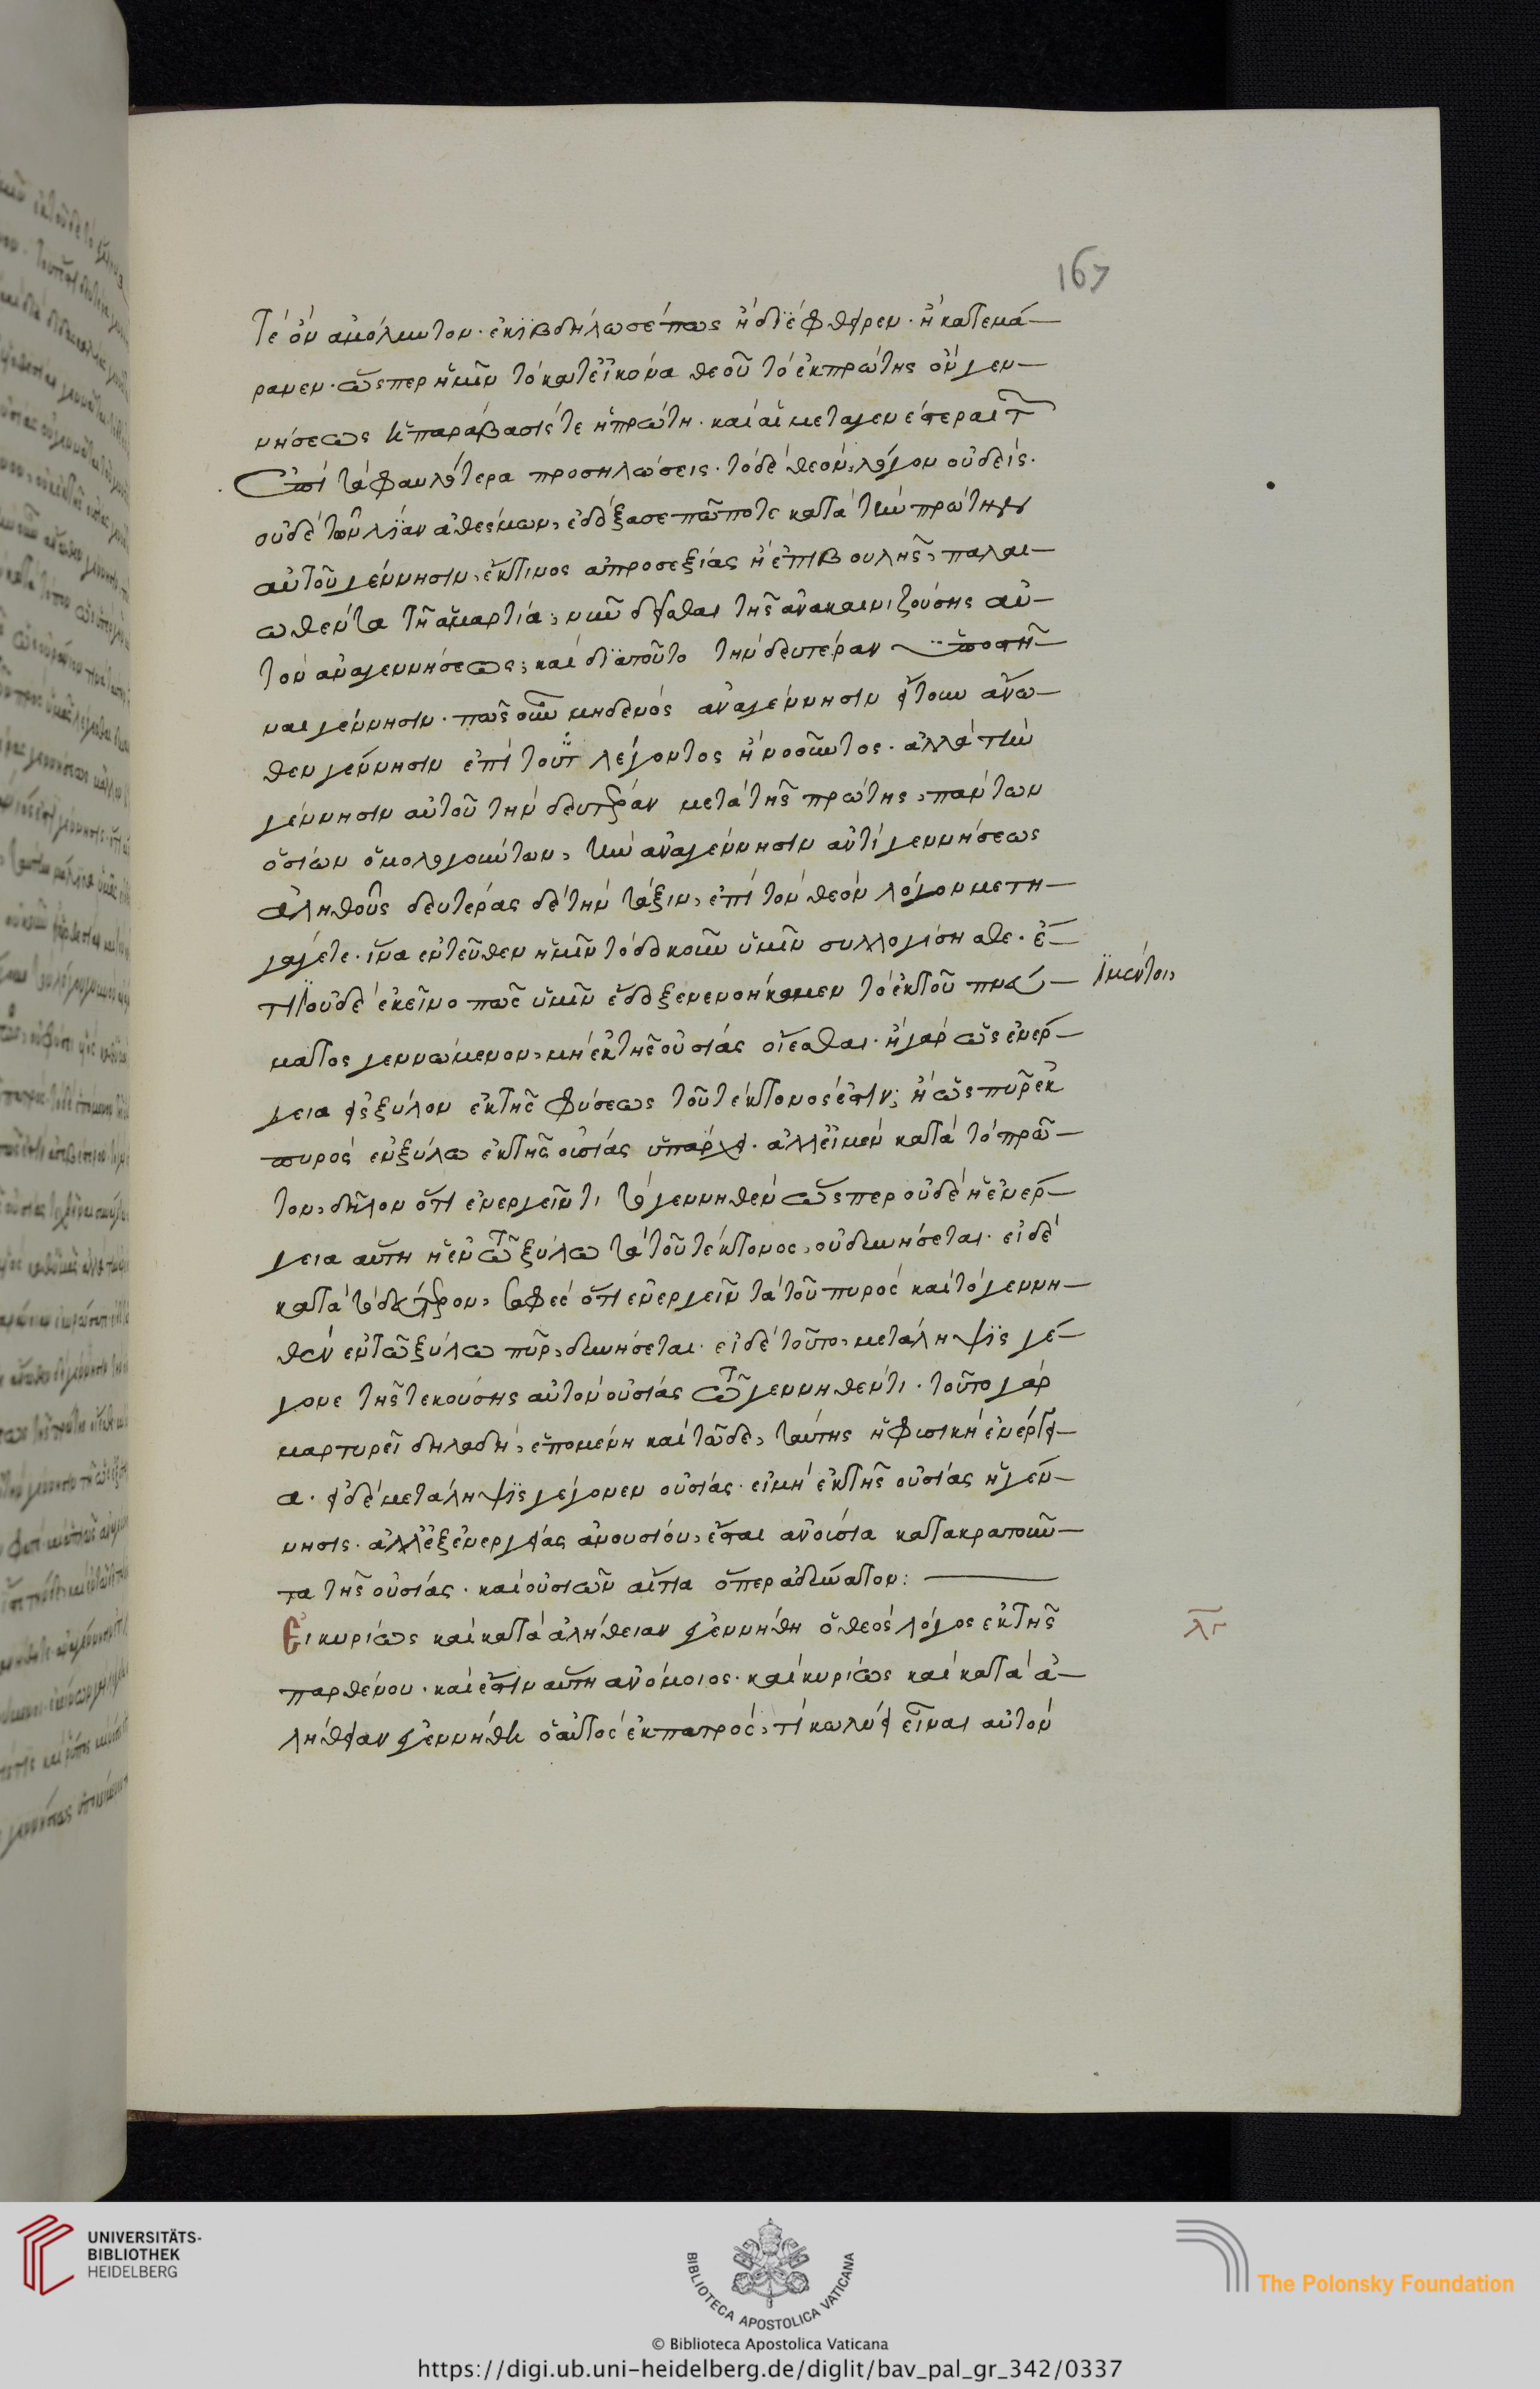 167
τὲ ὂν ἀμόλυντον· ἐκϊβδήλωσέπως ἢ διέφθειρεν· ἢ κατεμά-
ρανεν· ὥσπερ ἡμῖν τὸ κατεἰκόνα θεοῦ τὸ ἐκπρώτης ὂν γεν-
νήσεως ἡ παράβασίς τε ἡ πρώτη· καὶ αἱ μεταγενέστεραι
ἐπὶ τὰ φαυλότερα προσηλώσεις· τὸ δὲ θεὸν λόγον οὐδείς·
οὐδὲ τῶν λίαν ἀθέσμων, ἐδόξασε πώποτε κατὰ τὴν πρώτην
αὐτοῦ γέννησιν, ἔκτινος ἀπροσεξίας ἢ ἐπιβουλῆς, παλαι-
ωθέντα τῇ ἁμαρτία, νῦν δεῖσθαι τῆς ἀνακαινιζούσης αὐ-
τὸν ἀναγεννήσεως, καὶ διατοῦτο τὴν δευτέραν ὑποστῆ-
ναι γέννησιν· πῶς οὖν μηδενὸς ἀναγέννησιν ἤτοι ἄνω-
θεν γέννησιν ἐπὶ τούτου λέγοντος ἢ νοοῦντος· ἀλλὰ τὴν
γέννησιν αὐτοῦ τὴν δευτέραν μετὰ τῆς πρώτης, πάντων
ὁσίων ὁμολογούντων, τὴν ἀναγέννησιν ἀντὶ γεννήσεως
ἀληθοῦς δευτέρας δὲ τὴν τάξιν, ἐπὶ τὸν θεὸν λόγον μετη-
γάγετε· ἵνα ἐντεῦθεν ἡμῖν τὸ δοκοῦν ὑμῖν συλλογίσησθε· ἔ-
τι οὐδὲ ἐκεῖνο πῶς ὑμῖν ἔδοξε νενοήκαμεν τὸ ἐκ τοῦ πνεύ-
ματος γεννώμενον, μὴ ἐκ τῆς οὐσίας οἴεσθαι· ἢ γὰρ ὡς ἐνέρ-
γεια εἰς ξύλον ἐκ τῆς φύσεως τοῦ τέκτονος ἐστίν; ἢ ὡς πῦρ ἐκ
πυρὸς ἐν ξύλω ἐκ τῆς οὐσίας ὑπάρχει· ἀλλεἰ μὲν κατὰ τὸ πρῶ-
τον, δῆλον ὅτι ἐνεργεῖν τι τὸ γεννηθὲν ὥσπερ οὐδὲ ἡ ἐνέρ-
γεια αὕτη ἡ ἐν τῶ ξύλω τὰ τοῦ τέκτονος, οὐ δυνήσεται· εἰ δὲ
κατὰ τὸ δεύτερον, σαφὲς ὅτι ἐνεργεῖν τὰ τοῦ πυρὸς καὶ τὸ γεννη-
θὲν ἐν τῶ ξύλω πῦρ, δυνήσεται· εἰ δὲ τοῦτο, μετάληψις γέ-
γονε τῆς τεκούσης αὐτὸν οὐσίας τῶ γεννηθέντι· τοῦτο γὰρ
μαρτυρεῖ δηλαδὴ, ἑπομένη καὶ τῶδε, ταύτης ἡ φυσικὴ ἐνέργει-
α· εἰ δὲ μετάληψις γέγονεν οὐσίας· εἰ μὴ ἐκ τῆς οὐσίας ἡ γέν-
νησις· ἀλλ' ἐξ ἐνεργείας ἀνουσίου, ἔσται ἀνούσια κατακρατοῦν-
τα τῆς οὐσίας· καὶ οὐσιῶν αἴτια ὅπερ ἀδύνατον:
Εἰ κυρίως καὶ κατὰ ἀλήθειαν ἐγεννήθη ὁ θεὸς λόγος ἐκ τῆς
παρθένου· καὶ ἔστιν αὐτῆ ἀνόμοιος· καὶ κυρίως καὶ κατὰ ἀ-
λήθειαν ἐγεννήθη ὁ αὐτὸς ἐκπατρός, τί κωλύει εἶναι αὐτὸν
UNIVERSITÄTS-
BIBLIOTHEK
HEIDELBERG
BIBLIOTECA APOSTOLICA VATICANA
The Polonsky Foundation
© Biblioteca Apostolica Vaticana
https://digi.ub.uni-heidelberg.de/diglit/bav_pal_gr_342/0337